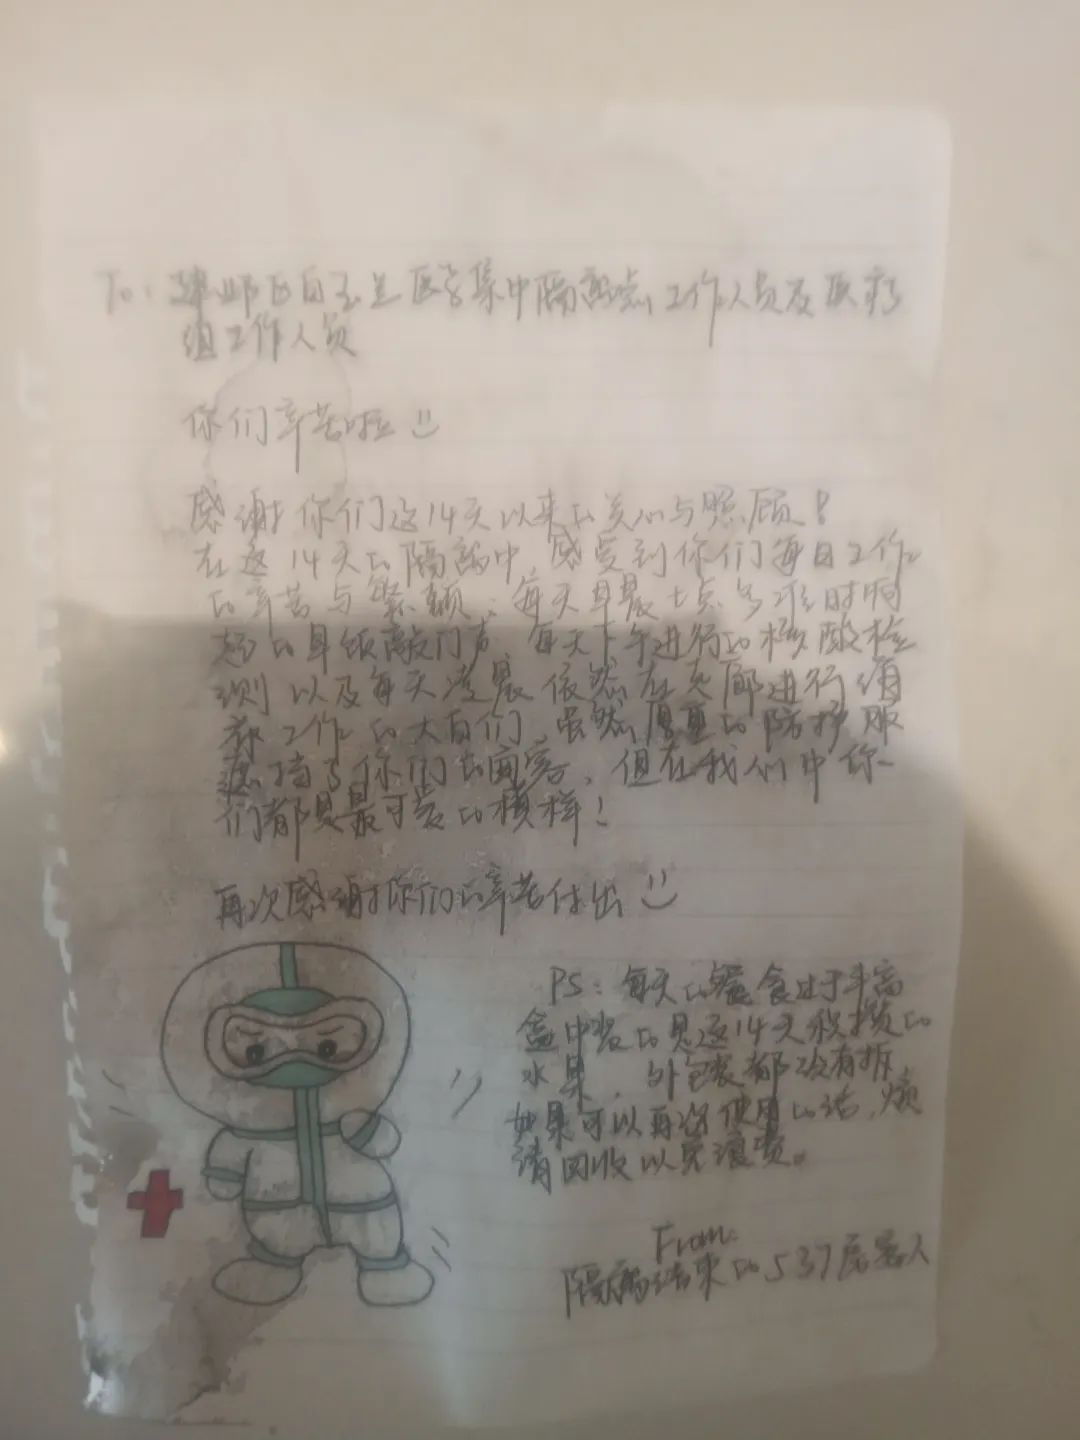 To：建邺区白玉兰医学集中隔离点工作人员及医疗
组工作人员
你们辛苦啦
感谢你们这14天以来的关心与照顾！
在这14天的隔离中，感受到你们每日工作
的辛苦与繁琐；每天早晨七点多准时响
起的早饭敲门声，每天下午进行的核酸检
测以及每天凌晨依然在走廊进行消
杀工作的大白们，虽然厚重的防护服
遮挡了你们的面容，但在我们中你
们都是最可爱的模样！
再次感谢你们的辛苦付出
PS：每天的餐食过于丰富
盒中装的是这14天积攒的
水果，外包装都没有拆，
如果可以再次使用的话，烦
请回收以免浪费。
From：
隔离结束的537房客人